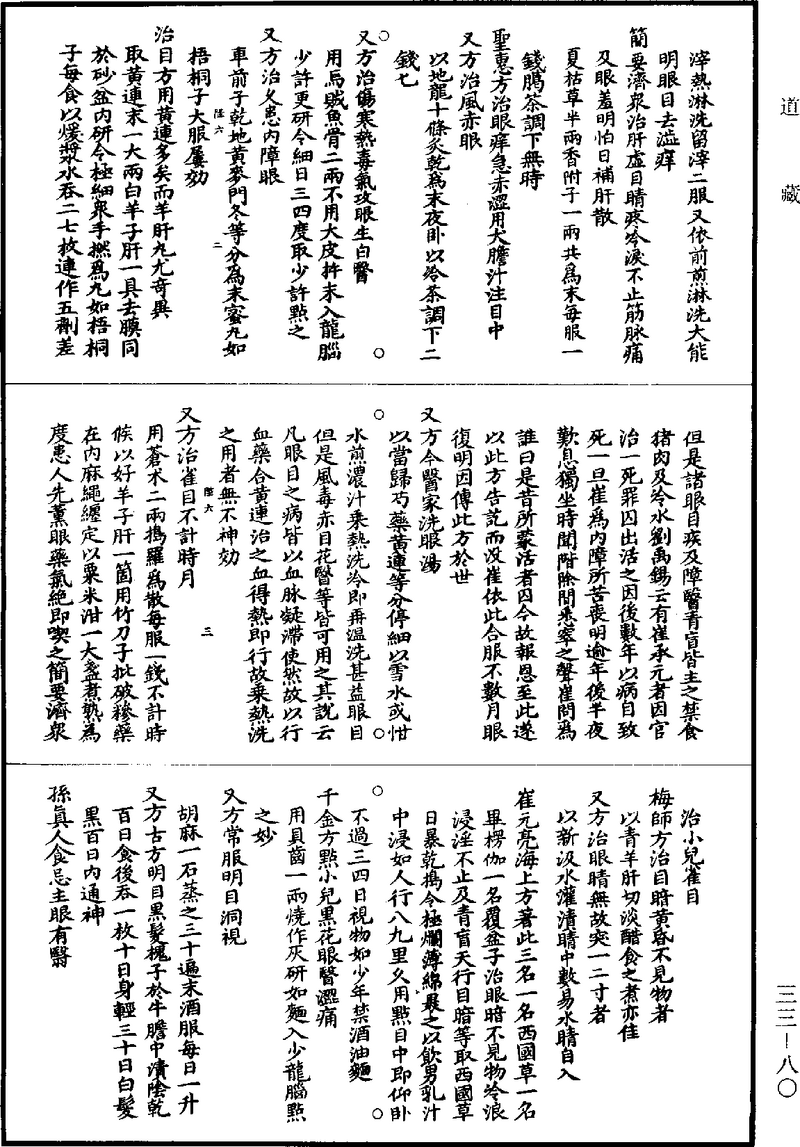 道藏
滓熱淋洗留滓二服又依前煎淋洗大能
明眼目去澁痒
簡要濟衆治肝虛目睛疼冷淚不止筋脉痛
及眼羞明怕日補肝散
夏枯草半兩香附子一兩共爲末每服一
錢臈茶調下無時
聖惠方治眼痒急赤澀用犬膽汁注目中
又方治風赤眼
以地龍十條炙乾爲末夜卧以冷茶調下二
錢匕
又方治傷寒熱毒氣攻眼生白瞖
用烏賊魚骨二兩不用大皮杵末入龍腦
少許更研令細日三四度取少許點之
又方治久患內障眼
車前子乾地黃麥門冬等分為末蜜丸如
陸六 二
梧桐子大服屢効
治目方用黃連多矣而羊肝丸尤奇異
取黃連末一大兩白羊子肝一具去膜同
於砂盆內研令極細衆手撚爲丸如梧桐
子每食以煖漿水吞二七枚連作五劑差
但是諸眼目疾及障瞖青盲皆主之禁食
猪肉及冷水劉禹錫云有崔承元者因官
治一死罪囚出活之因後數年以病自致
死一旦崔爲內障所苦喪明逾年後半夜
歎息獨坐時聞階除間悉窣之聲崔問爲
誰曰是昔所蒙活者囚今故報恩至此遂
以此方告訖而沒崔依此合服不數月眼
復明因傳此方於世
又方今醫家洗眼湯
以當歸芍藥黃連等分停細以雪水或甜
水煎濃汁乗熱洗冷即再溫洗甚益眼目
但是風毒赤目花瞖等皆可用之其說云
凡眼目之病皆以血脉凝滯使然故以行
血藥合黃連治之血得熱即行故乗熱洗
之用者無不神効
陸六 三
又方治雀目不計時月
用蒼术二兩搗羅爲散每服一錢不計時
候以好羊子肝一箇用竹刀子批破糝藥
在內麻繩纏定以粟米泔一大盞煮熟爲
度患人先薰眼藥氣絶即喫之簡要濟衆
治小兒雀目
梅師方治目暗黃昏不見物者
以青羊肝切淡醋食之煮亦佳
又方治眼睛無故突一二寸者
以新汲水灌漬睛中數易水睛自入
崔元亮海上方著此三名一名西國草一名
畢楞伽一名覆盆子治眼暗不見物冷淚
浸淫不止及青盲天行目暗等取西國草
日暴乾搗令極爛薄綿裹之以飲男乳汁
中浸如人行八九里久用點目中即仰卧
不過三四日視物如少年禁酒油麵
千金方點小兒黑花眼瞖澀痛
用貝齒一兩燒作灰研如麵入少龍腦點
之妙
又方常服明目洞視
胡麻一石蒸之三十遍末酒服每日一升
又方古方明目黑髮槐子於牛膽中漬陰乾
百日食後吞一枚十日身輕三十日白髮
黑百日內通神
孫眞人食忌主眼有瞖
三三-八〇